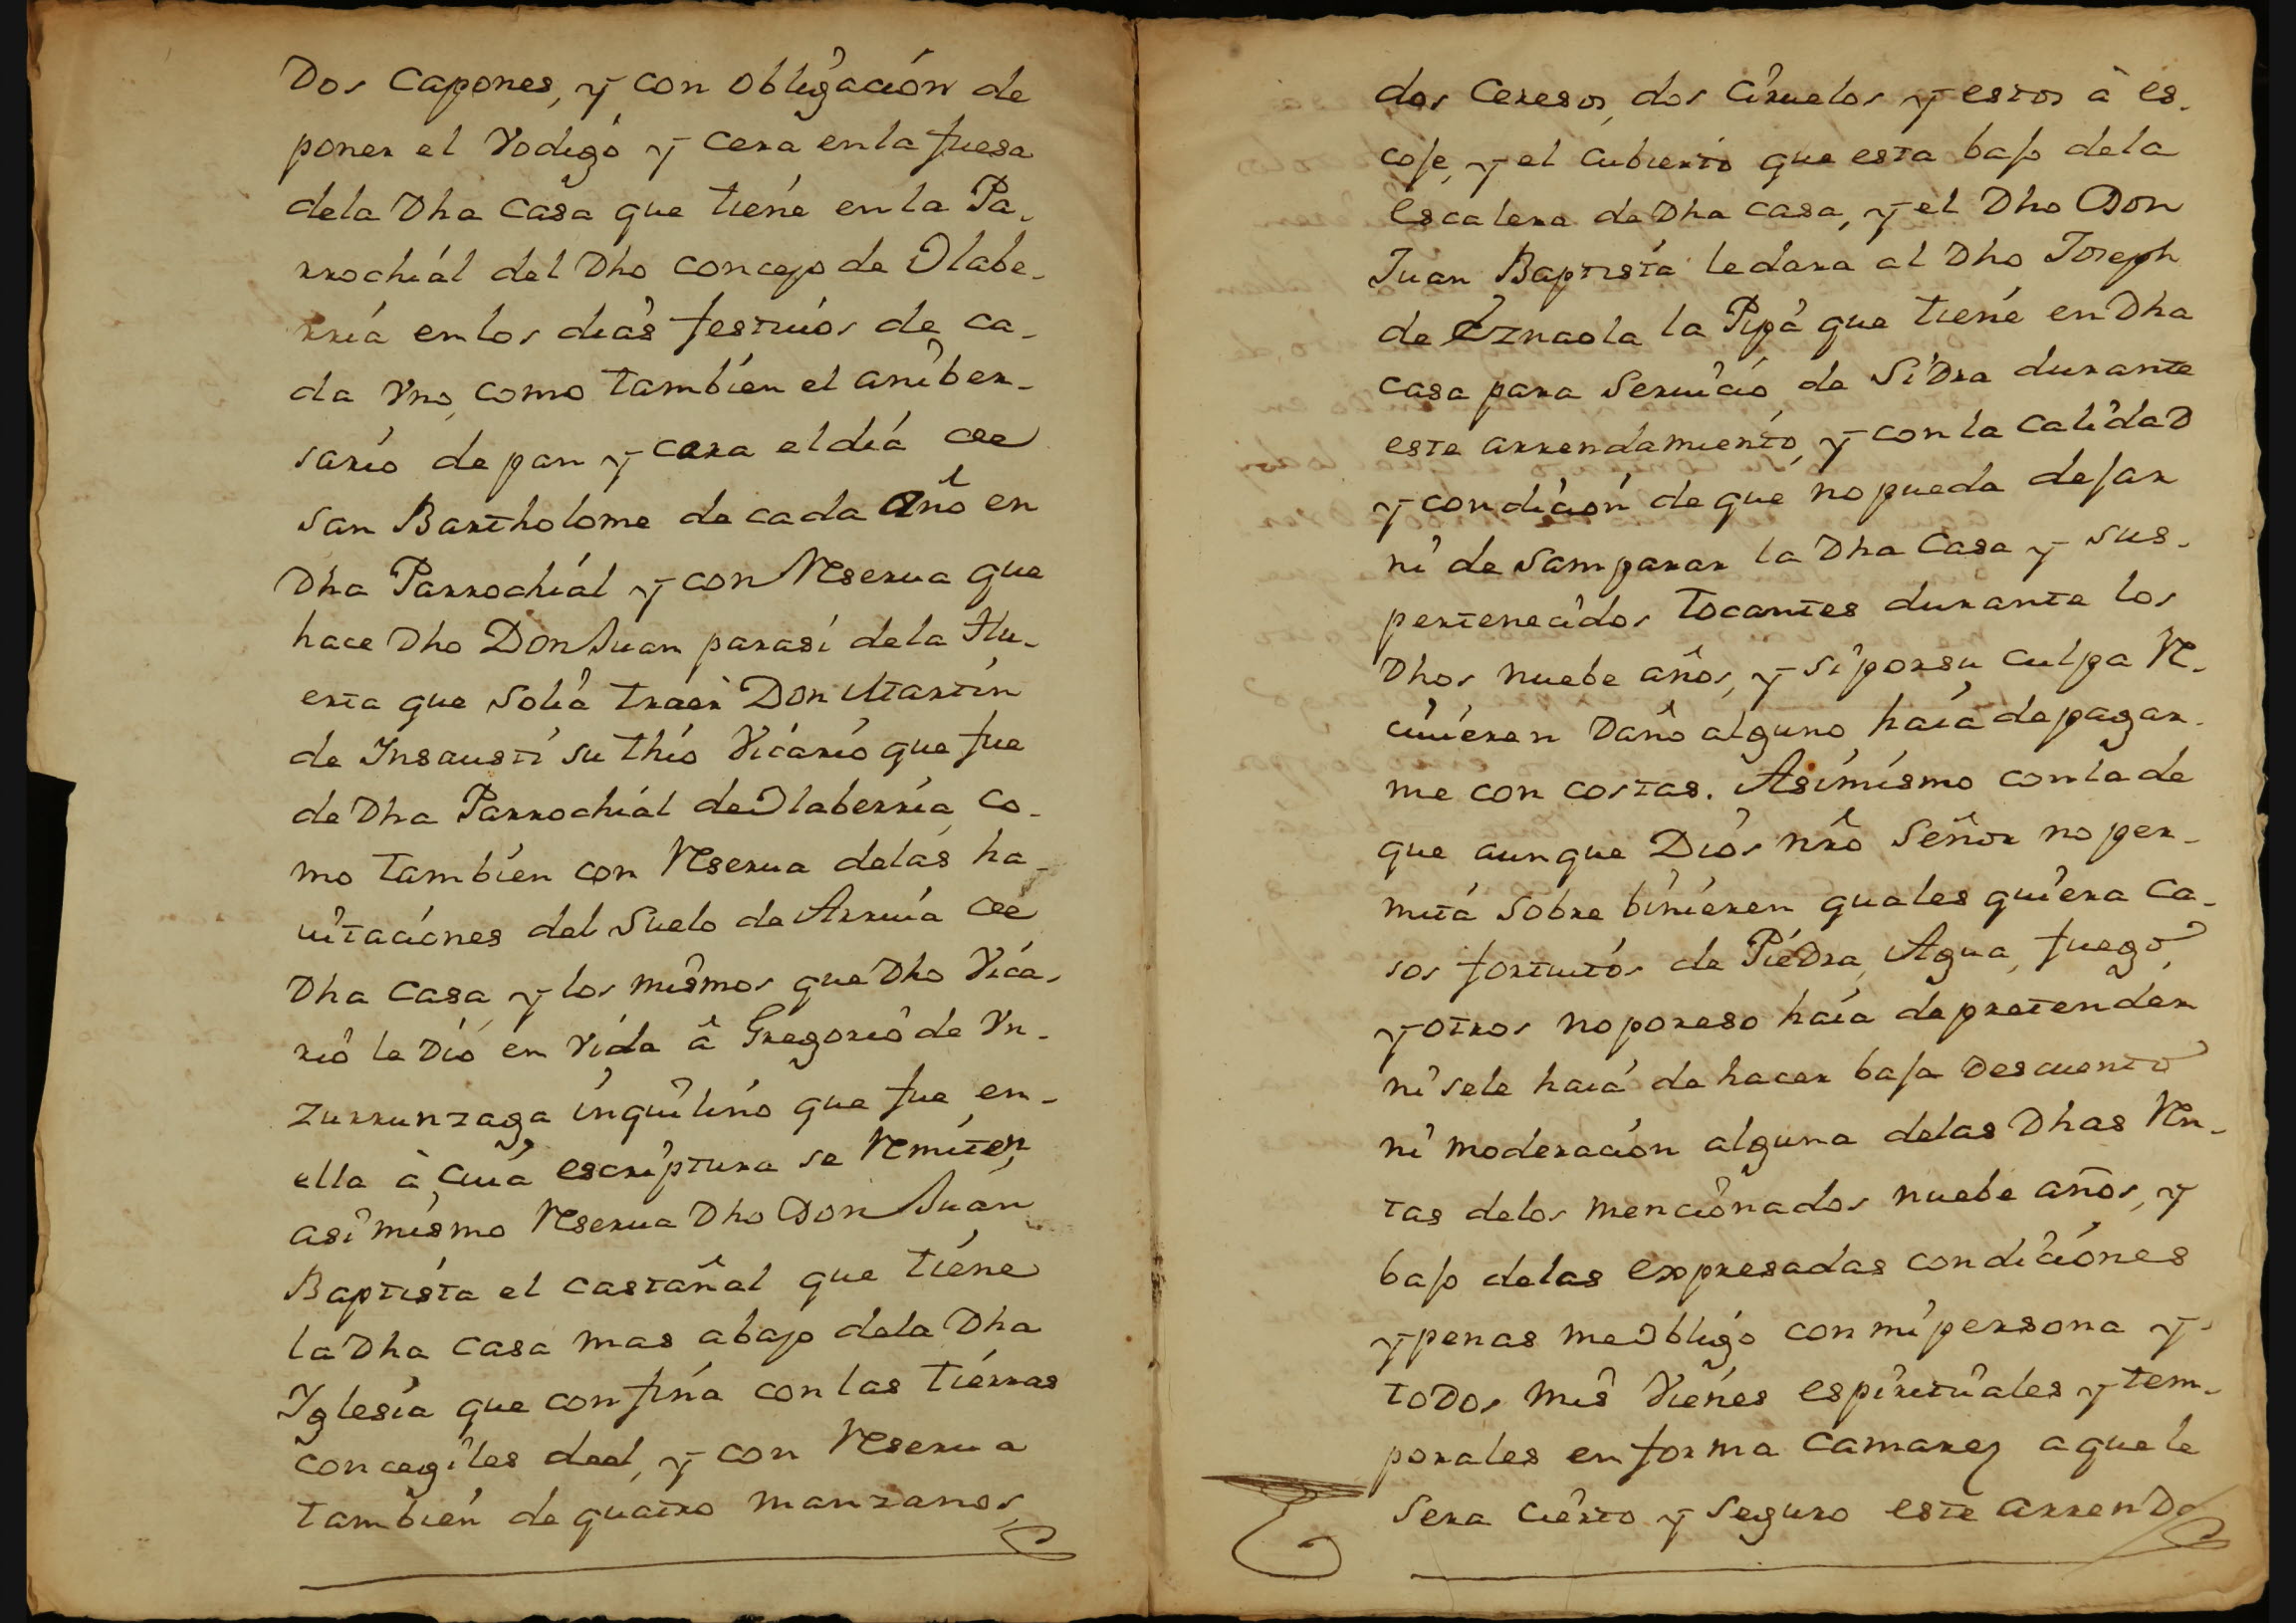 Dos Capones, y con obligación de
poner el Vodigo y Cera en la fuesa
dela Dha Casa que tiene en la Pa-
rrochial del Dho concejo de Olabe-
rria en los dias festiuos de ca-
da Vno, como tambien el aniber-
sario de pan y cera el dia de
san Bartholome de cada año en
Dha Parrochial y con Reserua que
hace Dho Don Juan para si dela Hu-
erta que solia traer Don Martin
de Insausti su thio Vicario que fue
de Dha Parrochial de Olaberria, Co-
mo tambien con Reserua delas ha-
uitaciones del Suelo de Arriua de
Dha Casa, y los mismos que Dho Vica-
rio le Dio en Vida â Gregorio de Vr-
zurrunzaga inquilino que fue en-
ella à Cuia escriptura se Remiten,
asi mismo Reserua Dho Don Juan
Baptista el castañal que tiene
la Dha Casa mas abajo dela Dha
Iglesia que confina con las tierras
concegiles deel, y con Reserua
tambien de quatro manzanos,
dos Ceresos, dos Ciruelos y estos à es-
coje, y el cubierto que esta bajo dela
escalera de Dha casa, y el Dho Don
Juan Baptista le dara al Dho Joseph
de Eznaola la Pipa que tiene en Dha
casa para Seruicio de SiDra durante
este arrendamiento, y con la CalidaD
y condicion de que no pueda dejar
ni desamparar la Dha Casa y sus-
pertenecidos tocantes durante los
Dhos nuebe años, y si por su culpa Re-
ciuieren Daño alguno haia de pagar-
me con costas. Asimismo con la de
que aunque Dios nrô Señor no per-
mita sobre binieren quales quiera Ca-
sos fortuitos de PieDra, Agua, fuego,
y otros no por eso haia de pretender
ni sele haia de hacer baja Descuento
ni moderacion alguna delas Dhas Ren-
tas delos mencionados nuebe años, y
bajo delas expresadas condiciones
y penas me Obligo con mi persona y
toDos mis Vienes espirituales y tem-
porales en forma Camarez aquele
sera cierto y seguro este arrenDa